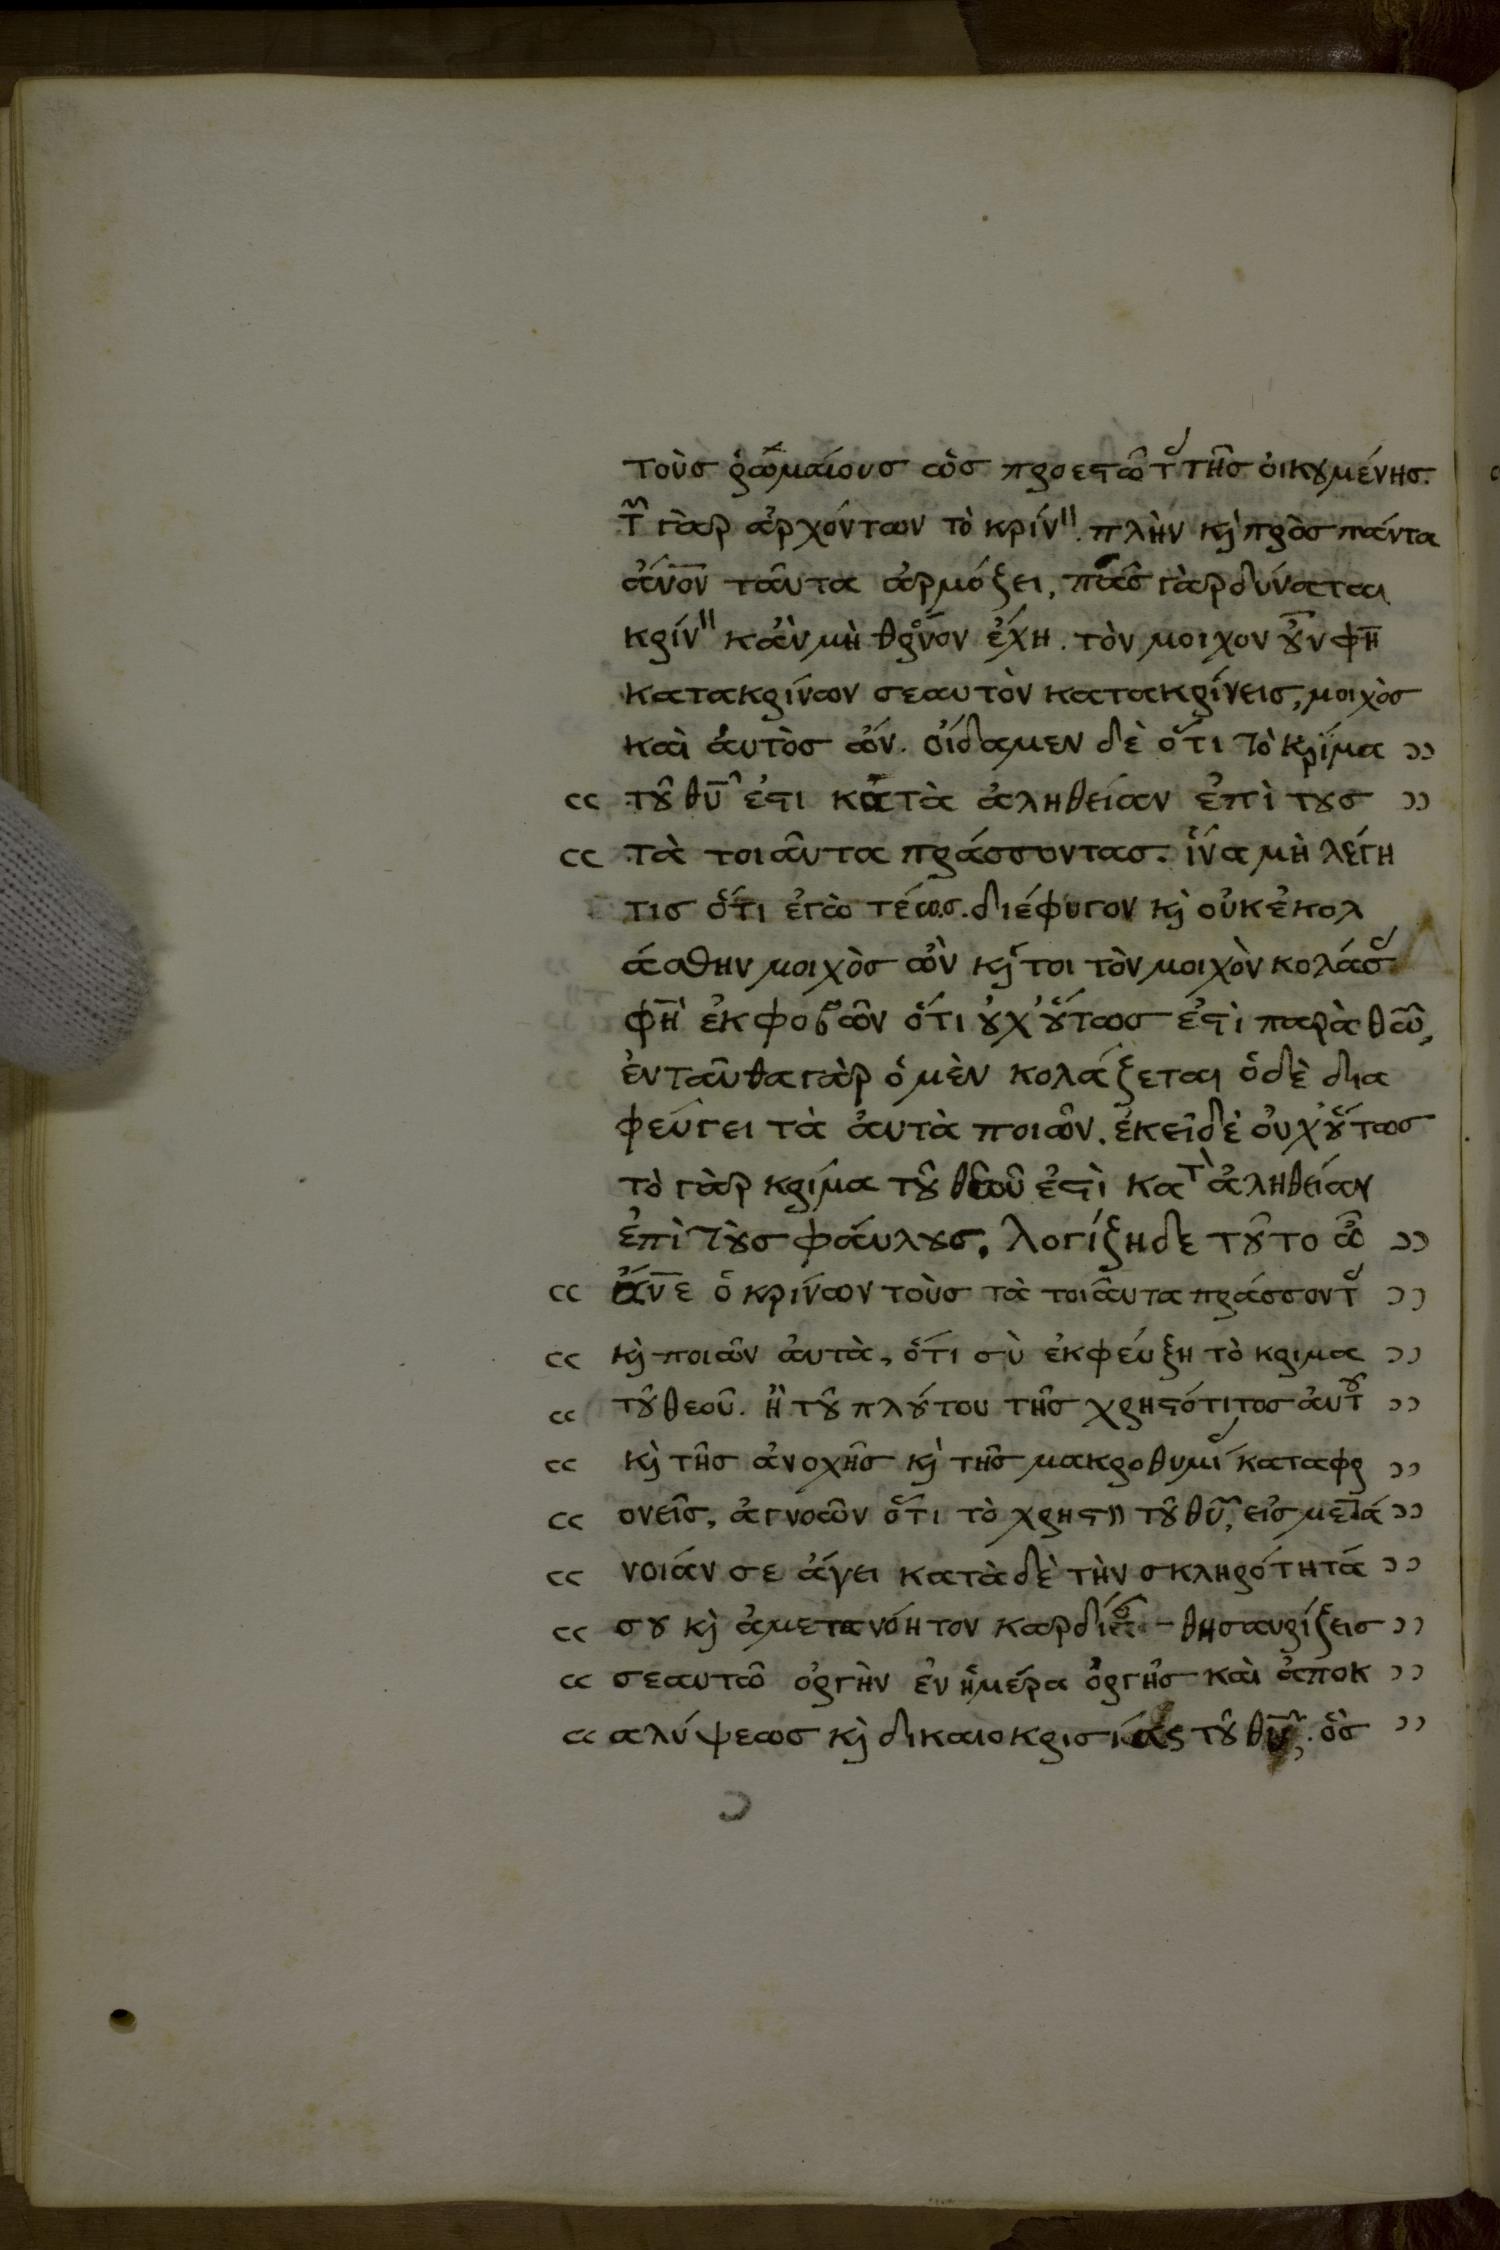 τοὺσ ῥωμαίουσ ὡσ προεστῶτ τῆσ ὀικουμένησ.
τ γὰρ ἀρχόντων τὸ κρίν". πλὴν κὶ πρὸσ πάντα
ἄνον ταῦτα ἁρμόζει, πᾶσ γὰρ δύναται
κρίν" κἂν μὴ θρόνον ἔχη. τὸν μοιχον οὖν φη
κατακρίνων σεαυτὸν κατακρίνεισ, μοιχὸσ
καὶ ἀυτὸσ ὤν. οἴδαμεν δὲ ὅτι τὸ κρίμα ››
‹‹ τοῦ θυ ἐστι κατὰ ἀληθείαν ἐπὶ τουσ ››
‹‹ τὰ τοιαῦτα πράσσοντασ. ἵνα μὴ λέγη
τισ ὅτι ἐγὼ τέωσ. διέφυγον κὶ οὐκ ἐκολ
άσθην μοιχὸσ ὢν κὶ τοι τὸν μοιχὸν κολάσ
φη ἐκφοβῶν ὅτι οὐχ' οὕτωσ ἐστὶ παρὰ θῶ,
ἐνταῦθα γὰρ ὁ μὲν κολάζεται ὁ δὲ δια
φεύγει τὰ ἀυτὰ ποιῶν. ἐκεῖ δὲ ὀυχ' οὕτωσ
τὸ γὰρ κρίμα τοῦ θεοῦ ἐστὶ κατ ἀληθείαν
ἐπὶ τοὺσ φάυλουσ. λογίζη δε τοῦτο ὦ ››
‹‹ ἄνε ὁ κρίνων τοὺσ τὰ τοιᾶυτα πράσσοντ ››
‹‹ κὶ ποιῶν ἀυτὰ, ὅτι σὺ ἐκφεύξη τὸ κριμα ››
‹‹ τοῦ θεοῦ. ἢ τοῦ πλούτου τῆσ χρηστότιτοσ ἀυτου ››
‹‹ κὶ τῆσ ἀνοχῆσ κὶ τῆσ μακροθυμί καταφρ ››
‹‹ ονεῖσ, ἀγνοῶν ὅτι τὸ χρηστ" τοῦ θυ, εἰσ μετά ››
‹‹ νοιάν σε ἄγει κατὰ δὲ τὴν σκληρότητά ››
‹‹ σου κὶ ἀμετανόητον καρδί - θησαυρίζεισ ››
‹‹ σεαυτῶ ὀργὴν ἐν ἡμέρα ὀργῆσ καὶ ἀποκ ››
‹‹ αλύψεωσ κὶ δικαιοκρισίας τοῦ θυ. ὃσ ››